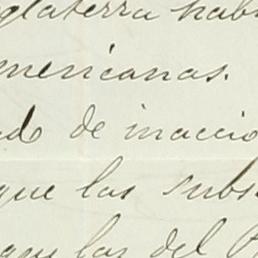 glaterra hab
mericanas.
ad de inaccio
que las subs
que las del